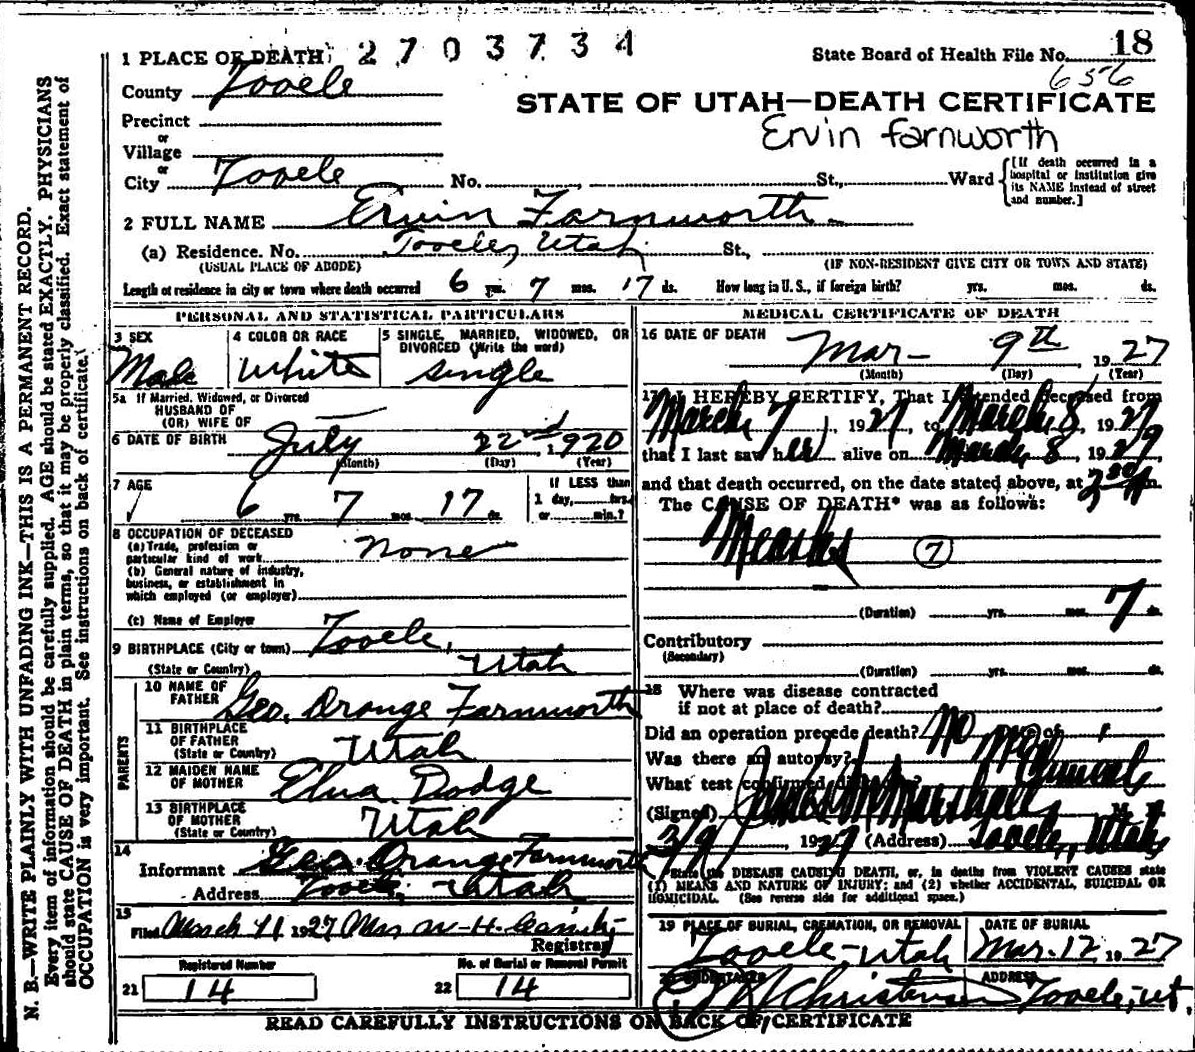 1 PLACE OF DEATH 2703734
State Board of Health File No. 18
656
County Tooele
STATE OF UTAH—DEATH CERTIFICATE
Ervin Farnworth
Precinct
or
Village
or
City Tooele No. , St., Ward
[If death occurred in a
hospital or institution give
its NAME instead of street
and number.]
2 FULL NAME Ervin Farnworth
(a) Residence. No. Tooele, Utah St.,
(USUAL PLACE OF ABODE) (IF NON-RESIDENT GIVE CITY OR TOWN AND STATE)
Length of residence in city or town where death occurred 6 yrs. 7 mos. 17 ds. How long in U. S., if foreign birth? yrs. mos. ds.
PERSONAL AND STATISTICAL PARTICULARS
3 SEX
Male
4 COLOR OR RACE
White
5 SINGLE, MARRIED, WIDOWED, OR
DIVORCED (Write the word)
single
5a If Married, Widowed, or Divorced
HUSBAND OF
(OR) WIFE OF
6 DATE OF BIRTH July 22nd 1920
(Month) (Day) (Year)
7 AGE
6 yrs. 7 mos. 17 ds.
If LESS than
1 day, hrs.
or min.?
8 OCCUPATION OF DECEASED
(a) Trade, profession or
particular kind of work none
(b) General nature of industry,
business, or establishment in
which employed (or employer)
(c) Name of Employer
9 BIRTHPLACE (City or town) Tooele,
(State or Country) Utah
PARENTS
10 NAME OF
FATHER Geo. Orange Farnworth
11 BIRTHPLACE
OF FATHER
(State or Country) Utah
12 MAIDEN NAME
OF MOTHER Elva Dodge
13 BIRTHPLACE
OF MOTHER
(State or Country) Utah
14
Informant Geo. Orange Farnworth
Address Tooele, Utah
15
Filed March 11 1927 Mrs W. H.
Registrar
Registered Number
21 14
No. of Burial or Removal Permit
22 14
MEDICAL CERTIFICATE OF DEATH
16 DATE OF DEATH Mar— 9th 1927
(Month) (Day) (Year)
17 I HEREBY CERTIFY, That I attended deceased from
March 7, 1927, to March 8, 1927
that I last saw h alive on March 8, 1927
and that death occurred, on the date stated above, at m.
The CAUSE OF DEATH* was as follows:
Measles 7
(Duration) yrs. mos. 7 ds.
Contributory
(Secondary)
(Duration) yrs. mos. ds.
18 Where was disease contracted
if not at place of death?
Did an operation precede death? No Date of
Was there an autopsy? No
What test confirmed diagnosis? Clinical
(Signed) James M. Marshall
3/9, 1927 (Address) Tooele, Utah
*State the DISEASE CAUSING DEATH, or, in deaths from VIOLENT CAUSES state
(1) MEANS AND NATURE OF INJURY; and (2) whether ACCIDENTAL, SUICIDAL OR
HOMICIDAL. (See reverse side for additional space.)
19 PLACE OF BURIAL, CREMATION, OR REMOVAL
Tooele, Utah
DATE OF BURIAL
Mar. 12 1927
20 UNDERTAKER
Christensen
ADDRESS
Tooele, Ut.
READ CAREFULLY INSTRUCTIONS ON BACK OF CERTIFICATE
N. B.—WRITE PLAINLY WITH UNFADING INK—THIS IS A PERMANENT RECORD.
Every item of information should be carefully supplied. AGE should be stated EXACTLY. PHYSICIANS
should state CAUSE OF DEATH in plain terms, so that it may be properly classified. Exact statement of
OCCUPATION is very important. See instructions on back of certificate.